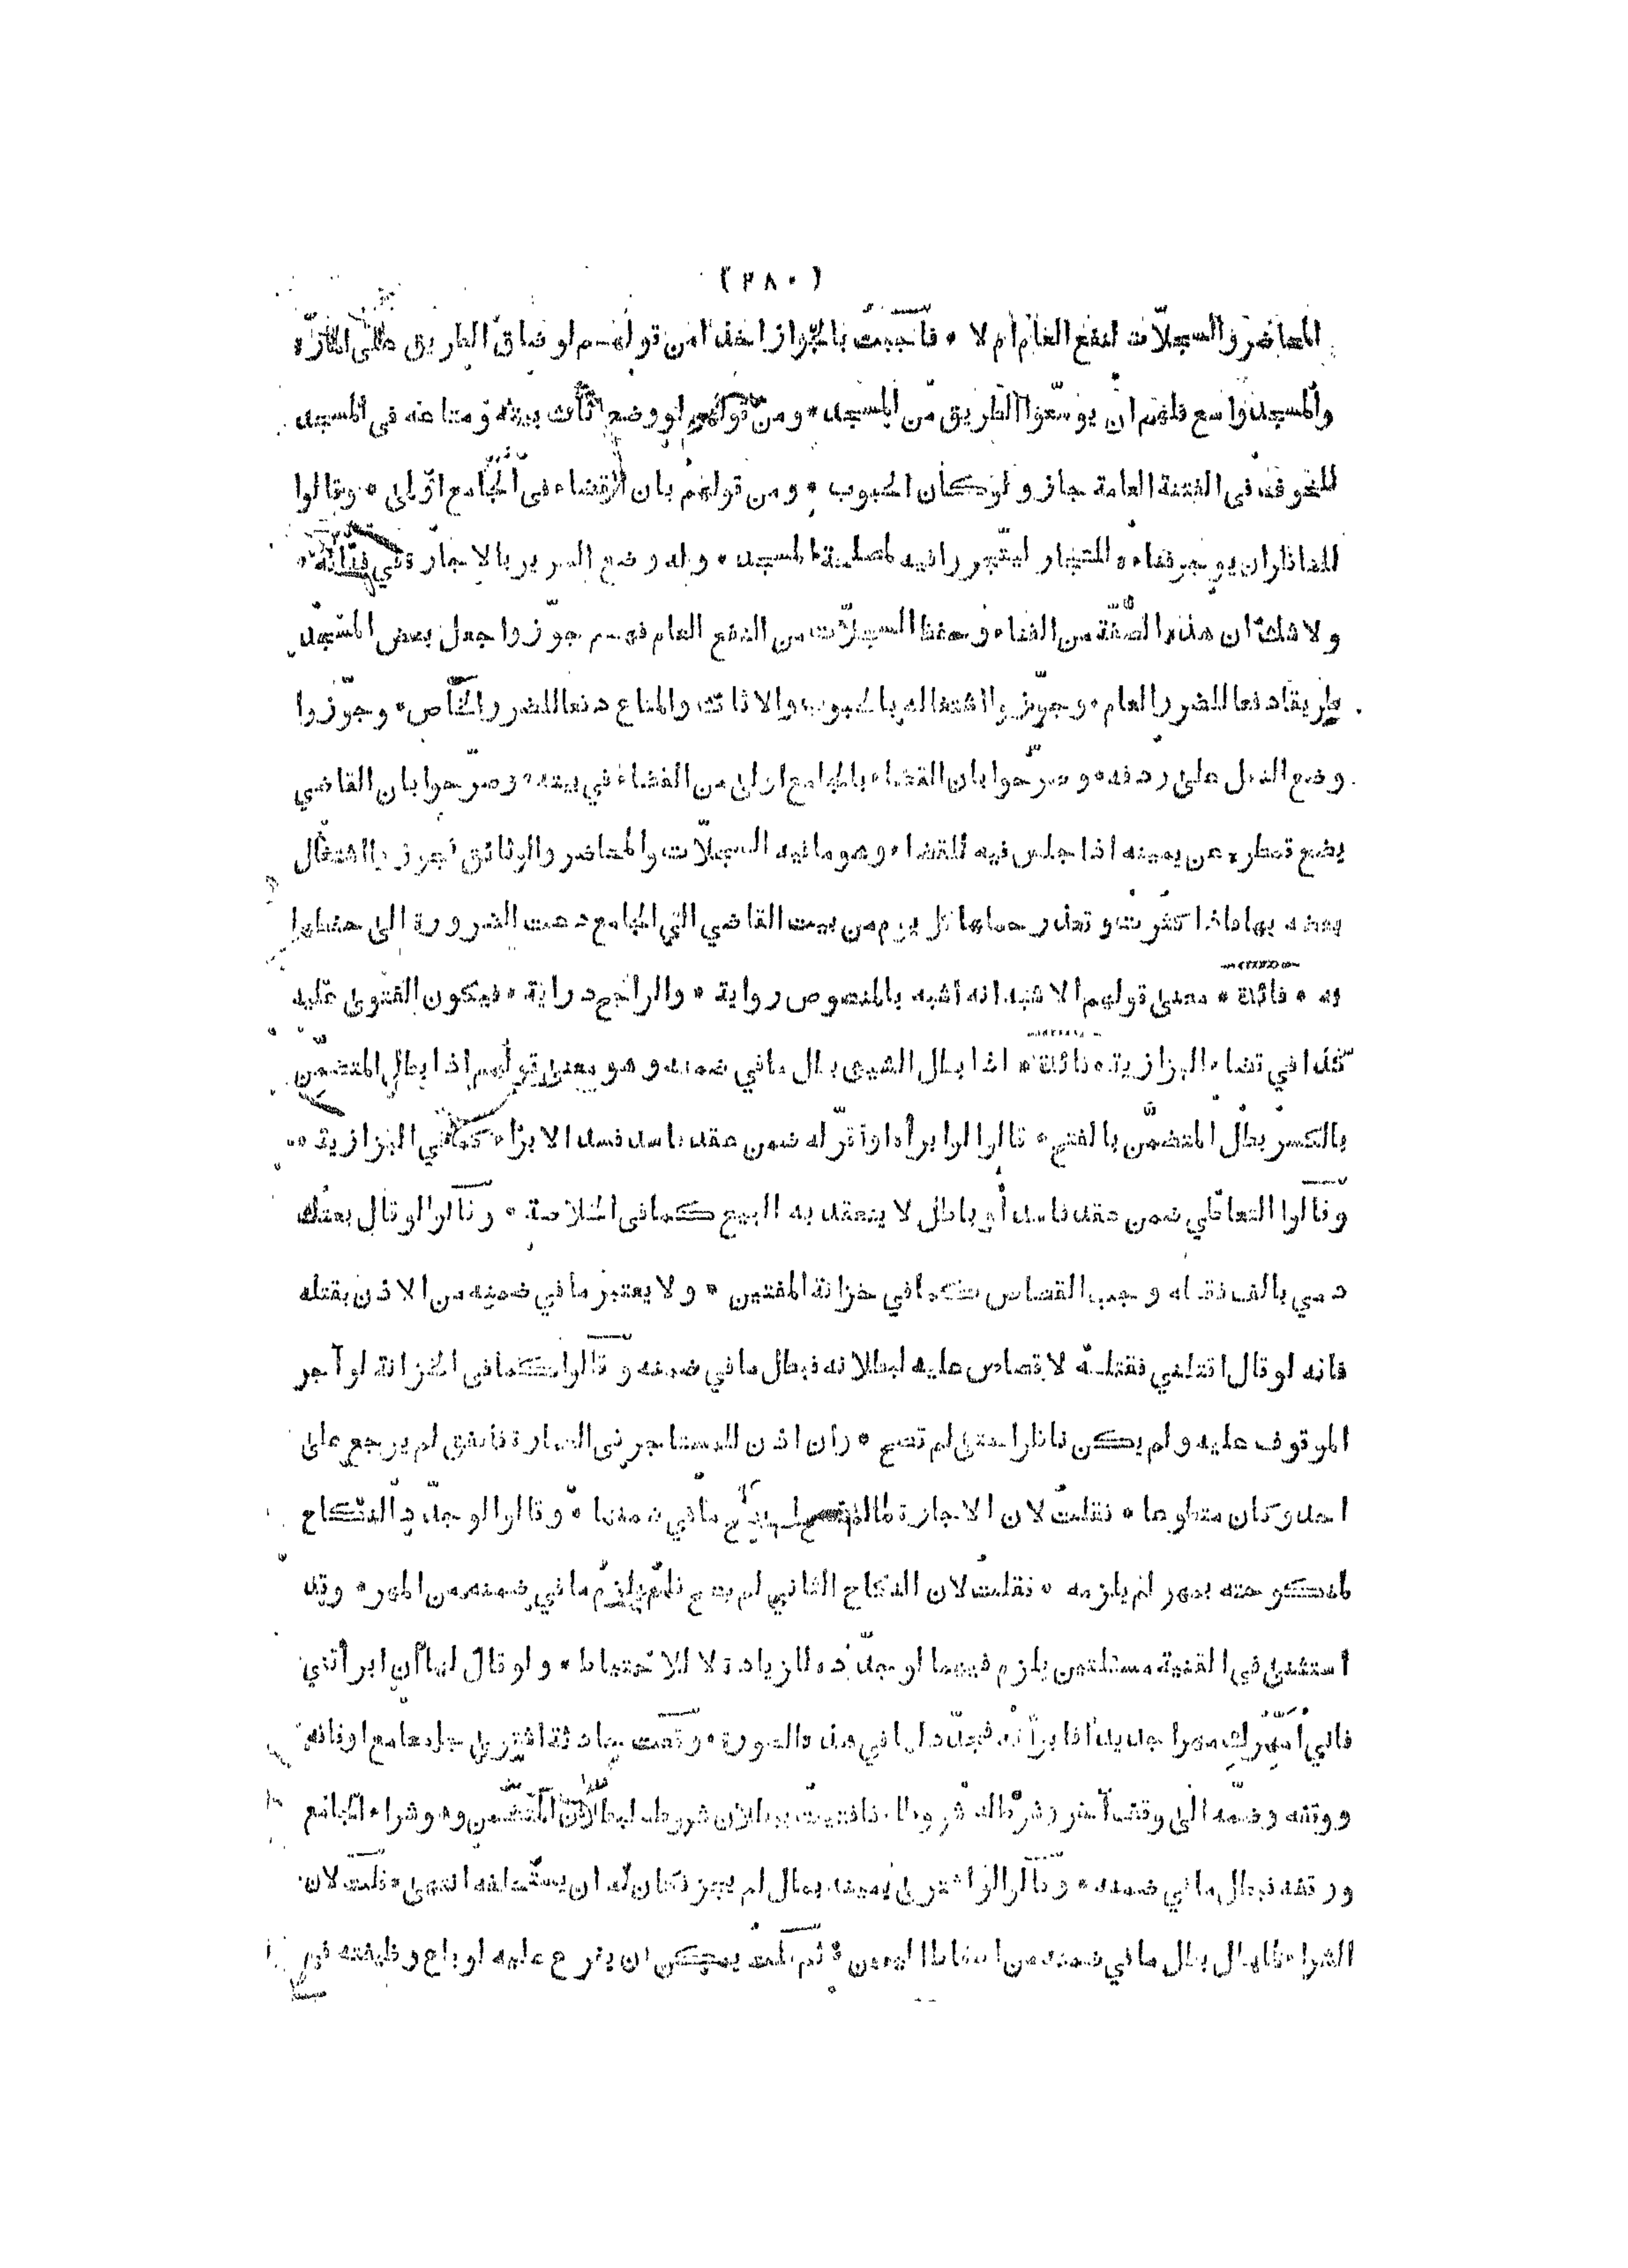 (٢٨٠)
المحاضر والسجلّات لنفع العام أم لا * فأجبت بالجواز اخذا من قولهم لو ضاق الطريق على المارّة
والمسجد واسع فلهم ان يوسعوا الطريق من المسجد * ومن قولهم لو وضع اثاث بيته ومتاعه في المسجد
للخوف في الفتنة العامة جاز ولو كان الحبوب * ومن قولهم بان القضاء في الجامع اولى * وقالوا
للناظران يوجر فناءه للتجار ليتجروا فيه لمصلحة المسجد * وله وضع السرير بالاجارة في فنائه *
ولا شك ان هذه الصفّة من الفناء وحفظ السجلّات من النفع العام فهم جوّزوا جعل بعض المسجد
طريقا دفعا للضرر العام * وجوّزوا اشتغاله بالحبوب والاثاث والمتاع دفعا للضرر الخاص * وجوّزوا
وضع النعل على رفه * وصرّحوا بان القضاء بالجامع اولى من القضاء في بيته * وصرّحوا بان القاضي
يضع قمطره عن يمينه اذا جلس فيه للقضاء * وهو ما فيه السجلّات والمحاضر والوثائق فجوزوا اشتغال
بعضه بها فاذا كثرت وتعذر حملها كل يوم من بيت القاضي الى الجامع دعت الضرورة الى حفظها
به * فائدة * معنى قولهم الاشبه انه أشبه بالمنصوص رواية * والراجح دراية * فيكون الفتوى عليه
كذا في قضاء البزازية * فائدة * اذا بطل الشيء بطل ما في ضمنه وهو معنى قولهم اذا بطل المتضمّن
بالكسر بطل المتضمَّن بالفتح * قالوا لو ابرأه او اقرّ له ضمن عقد فاسد فسد الابراء كما في البزازية *
وقالوا التعاطي ضمن عقد فاسد أو باطل لا ينعقد به البيع كما في الخلاصة * وقالوا لو قال بعتك
دمي بالف فقتله وجب القصاص كما في خزانة المفتين * ولا يعتبر ما في ضمنه من الاذن بقتله
فانه لو قال اقتلني فقتله لا قصاص عليه لبطلانه فبطل ما في ضمنه وقالوا كما في الخزانة لو آجر
الموقوف عليه ولم يكن ناظرا حتى لم تصح * وأن اذن للمستاجر في العمارة فأنفق لم يرجع على
احد وكان متطوعا * فقلت لان الاجارة لما لم تصح لم يصح ما في ضمنها * وقالوا لو جدّد النكاح
لمنكوحته بمهر لم يلزمه * فقلت لان النكاح الثاني لم يصح فلم يلزم ما في ضمنه من المهر * وقد
استثنى في القنية مسئلتين يلزم فيهما لو جدّده للزيادة لا للاحتياط * ولو قال لها أن ابرأتني
فاني أمهّرك مهرا جديدا فابرأته فجدّد لها في هذه الصورة * وقعت حادثة اشترى جامعا مع اوقافه
ووقفه وضمّه الى وقف آخر وشرط له شروطا فافتيت ببطلان شروطه لبطلان المتضمّن وهو شراء الجامع
ووقفه فبطل ما في ضمنه * وقالوا لو اشترى يمينه بمال لم يجز وكان له ان يستحلفه انتهى * قلت لان
الشراء لما بطل بطل ما في ضمنه من اسقاط اليمين * ثم قلت يمكن ان يفرع عليه لو باع وظيفته في